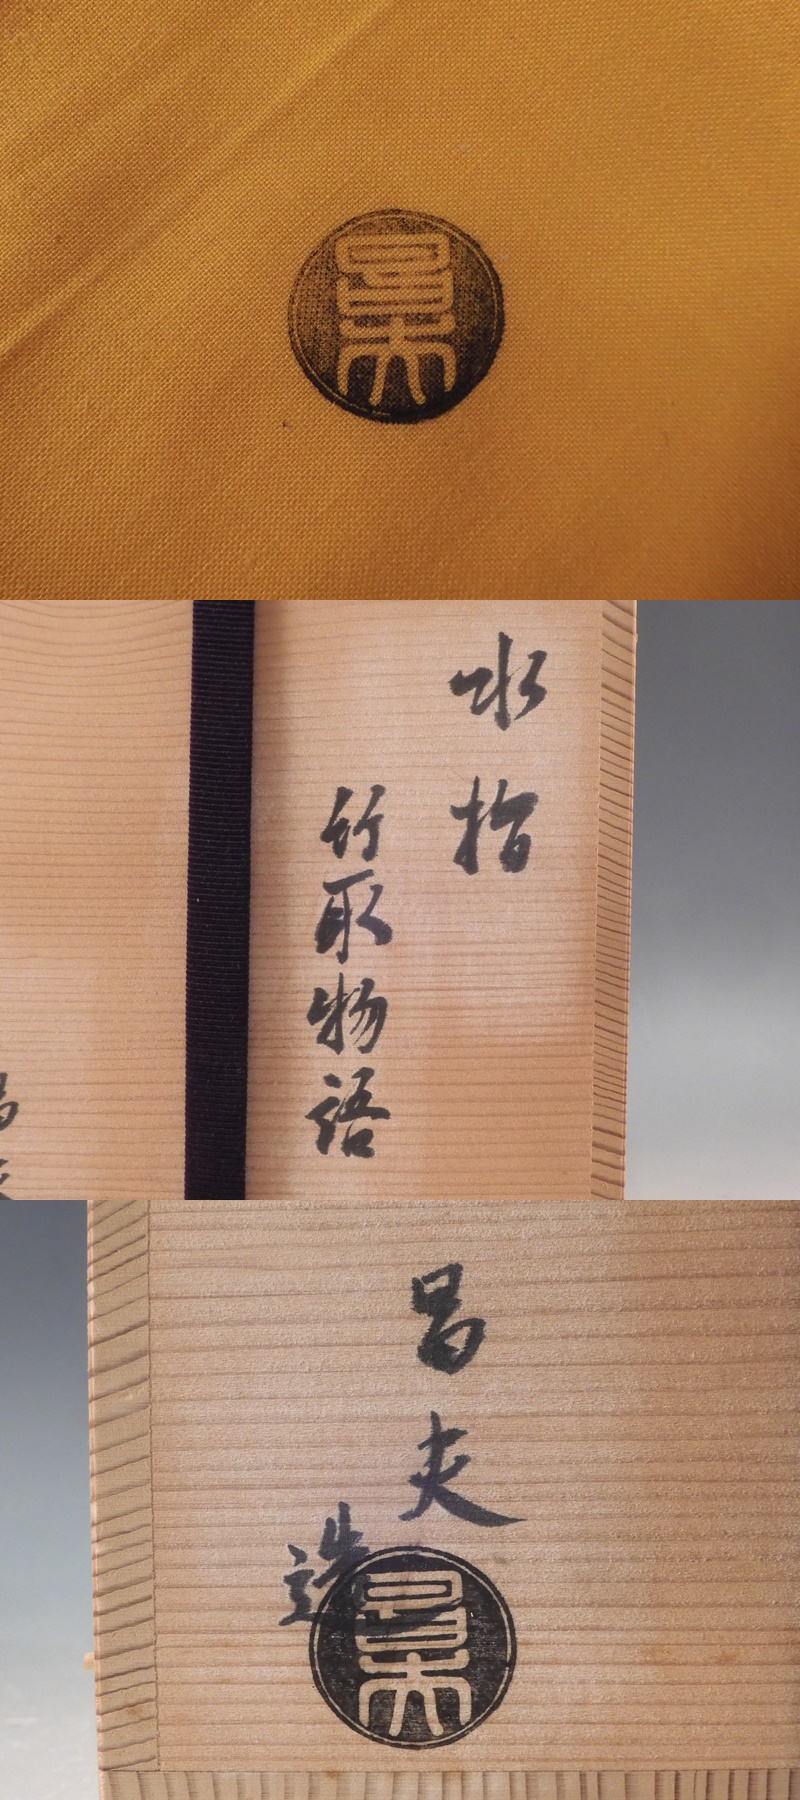 昌夫
水指
竹取物語
昌夫
昌夫
造
昌夫